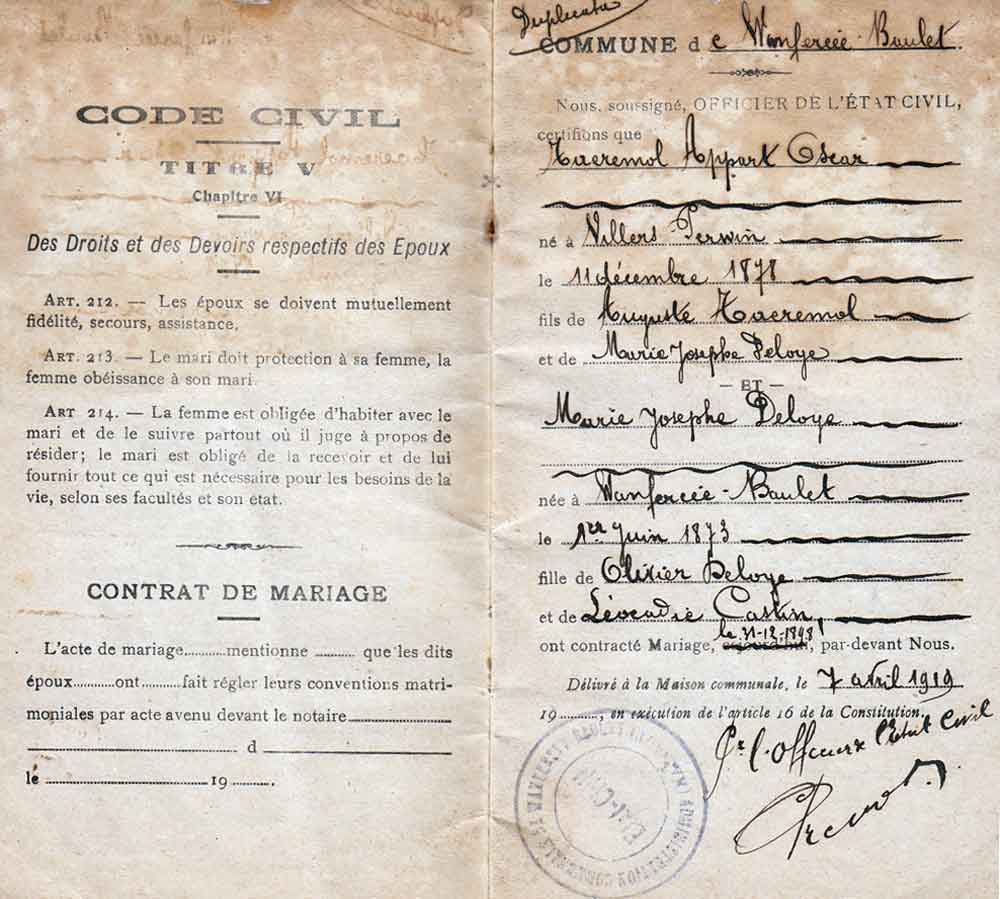 CODE CIVIL
TITRE V
Chapitre VI
Des Droits et des Devoirs respectifs des Epoux
ART. 212. — Les époux se doivent mutuellement
fidélité, secours, assistance.
ART. 213. — Le mari doit protection à sa femme, la
femme obéissance à son mari.
ART 214. — La femme est obligée d'habiter avec le
mari et de le suivre partout où il juge à propos de
résider; le mari est obligé de la recevoir et de lui
fournir tout ce qui est nécessaire pour les besoins de la
vie, selon ses facultés et son état.
CONTRAT DE MARIAGE
L'acte de mariage..........mentionne .......... que les dits
époux..........ont..........fait régler leurs conventions matri-
moniales par acte avenu devant le notaire
d
le 19
Duplicata
COMMUNE de Wanfercée-Baulet
Nous, soussigné, OFFICIER DE L'ÉTAT CIVIL,
certifions que
Haeremol Appart Oscar
né à Villers Perwin
le 11 décembre 1878
fils de Auguste Haeremol
et de Marie Josephe Deloye
— ET —
Marie Josephe Deloye
née à Wanfercée-Baulet
le 1er Juin 1873
fille de Olivier Deloye
et de Léocadie Castin,
le 31-12-1898
ont contracté Mariage, aujourd'hui, par-devant Nous.
Délivré à la Maison communale, le 7 avril 1919
19.........., en exécution de l'article 16 de la Constitution.
Pr l'Officier de l'Etat Civil
ADMINISTRATION COMMUNALE DE WANFERCÉE-BAULET (HAINAUT)
ETAT-CIVIL